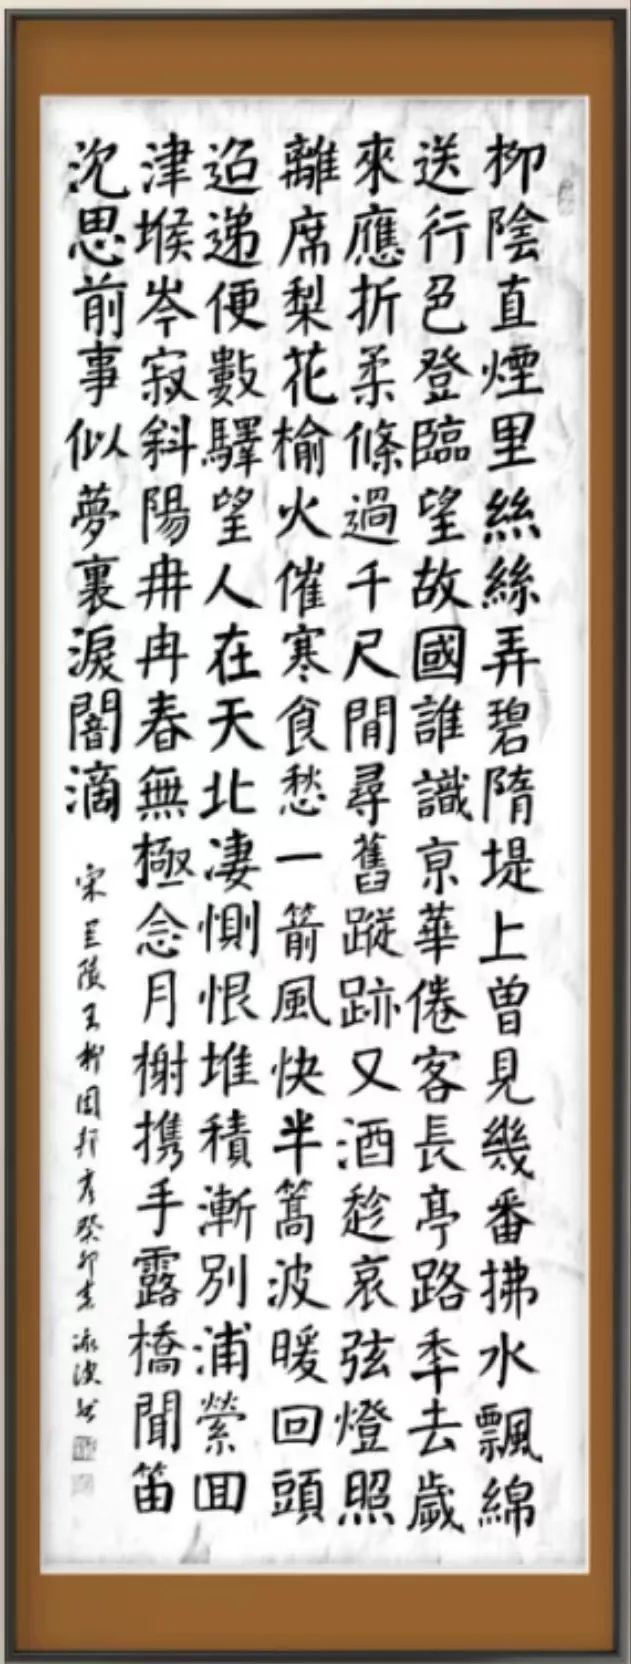 柳陰直煙里絲絲弄碧隋堤上曾見幾番拂水飄綿
送行色登臨望故國誰識京華倦客長亭路年去歲
來應折柔條過千尺閒尋舊蹤跡又酒趁哀弦燈照
離席梨花榆火催寒食愁一箭風快半篙波暖回頭
迢遞便數驛望人在天北凄惻恨堆積漸別浦縈回
津堠岑寂斜陽冉冉春無極念月榭携手露橋聞笛
沈思前事似夢裏淚闇滴
宋 陵王柳周邦彦癸卯